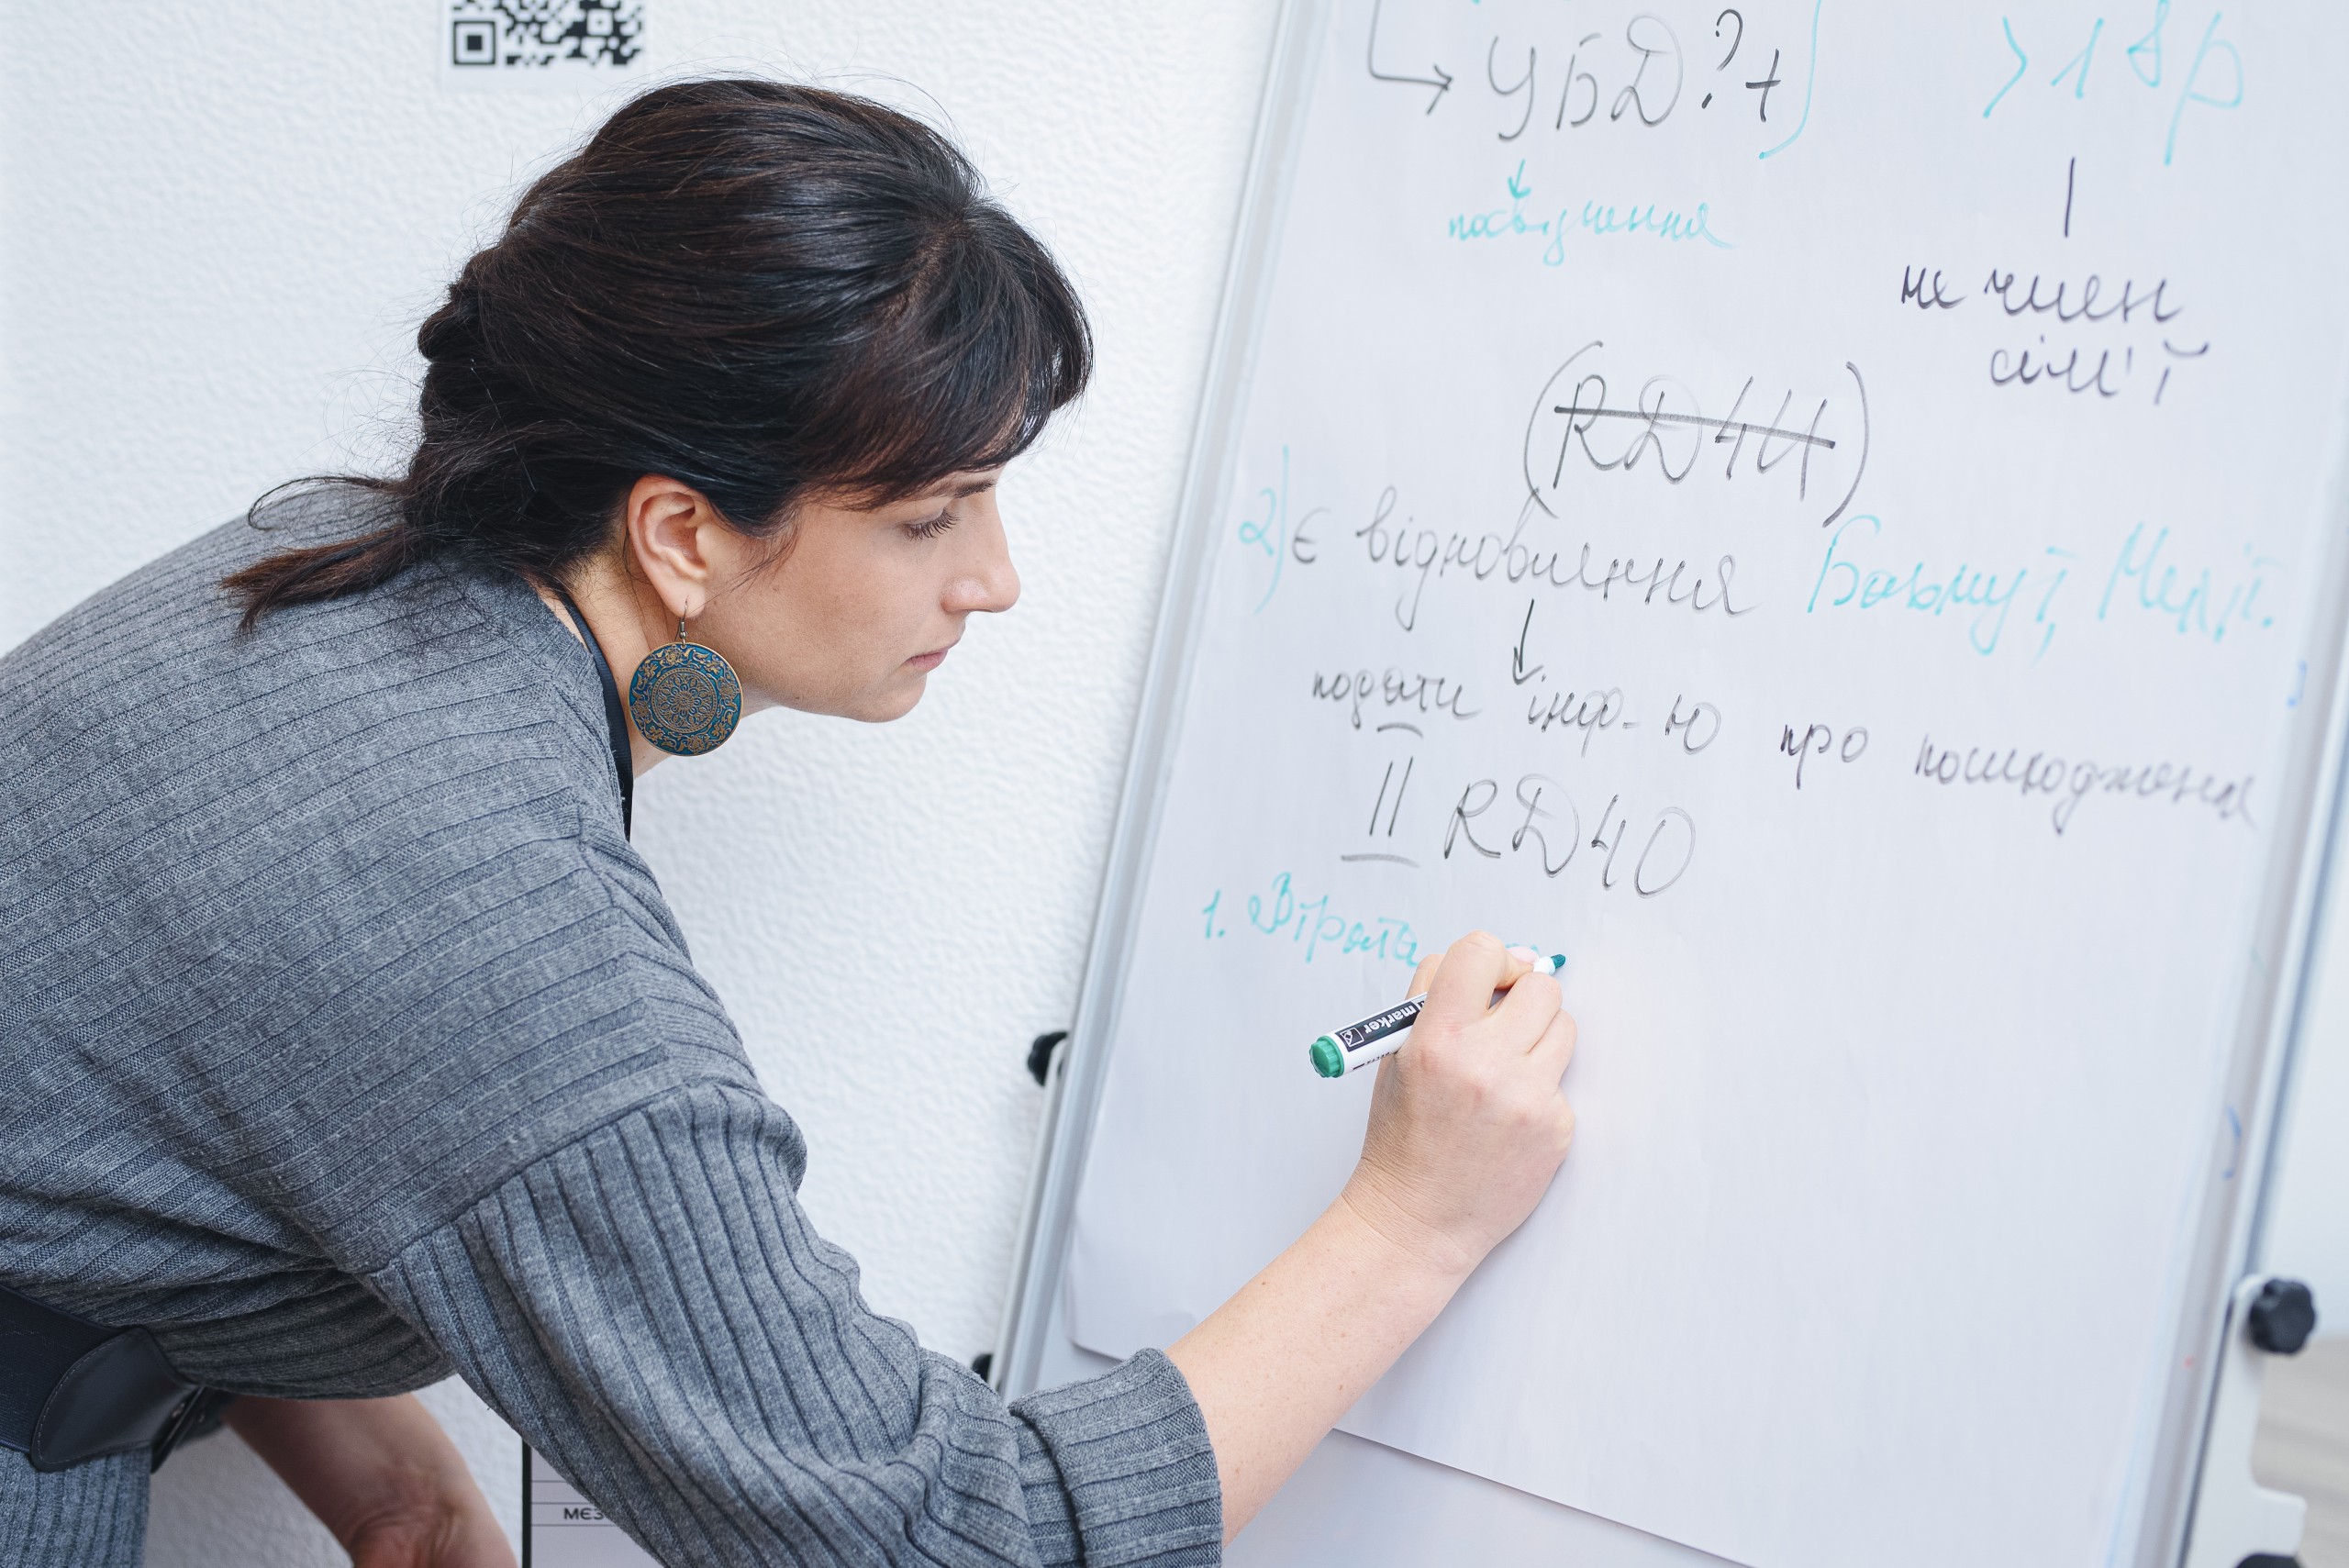 УБД?+
>18р
посвідчення
не член
сім'ї
(RD44)
2) Є відновлення Бахмут, Меліт.
подати інф-ю про пошкодження
II RD40
1. Втрата
marker
МЕЗ